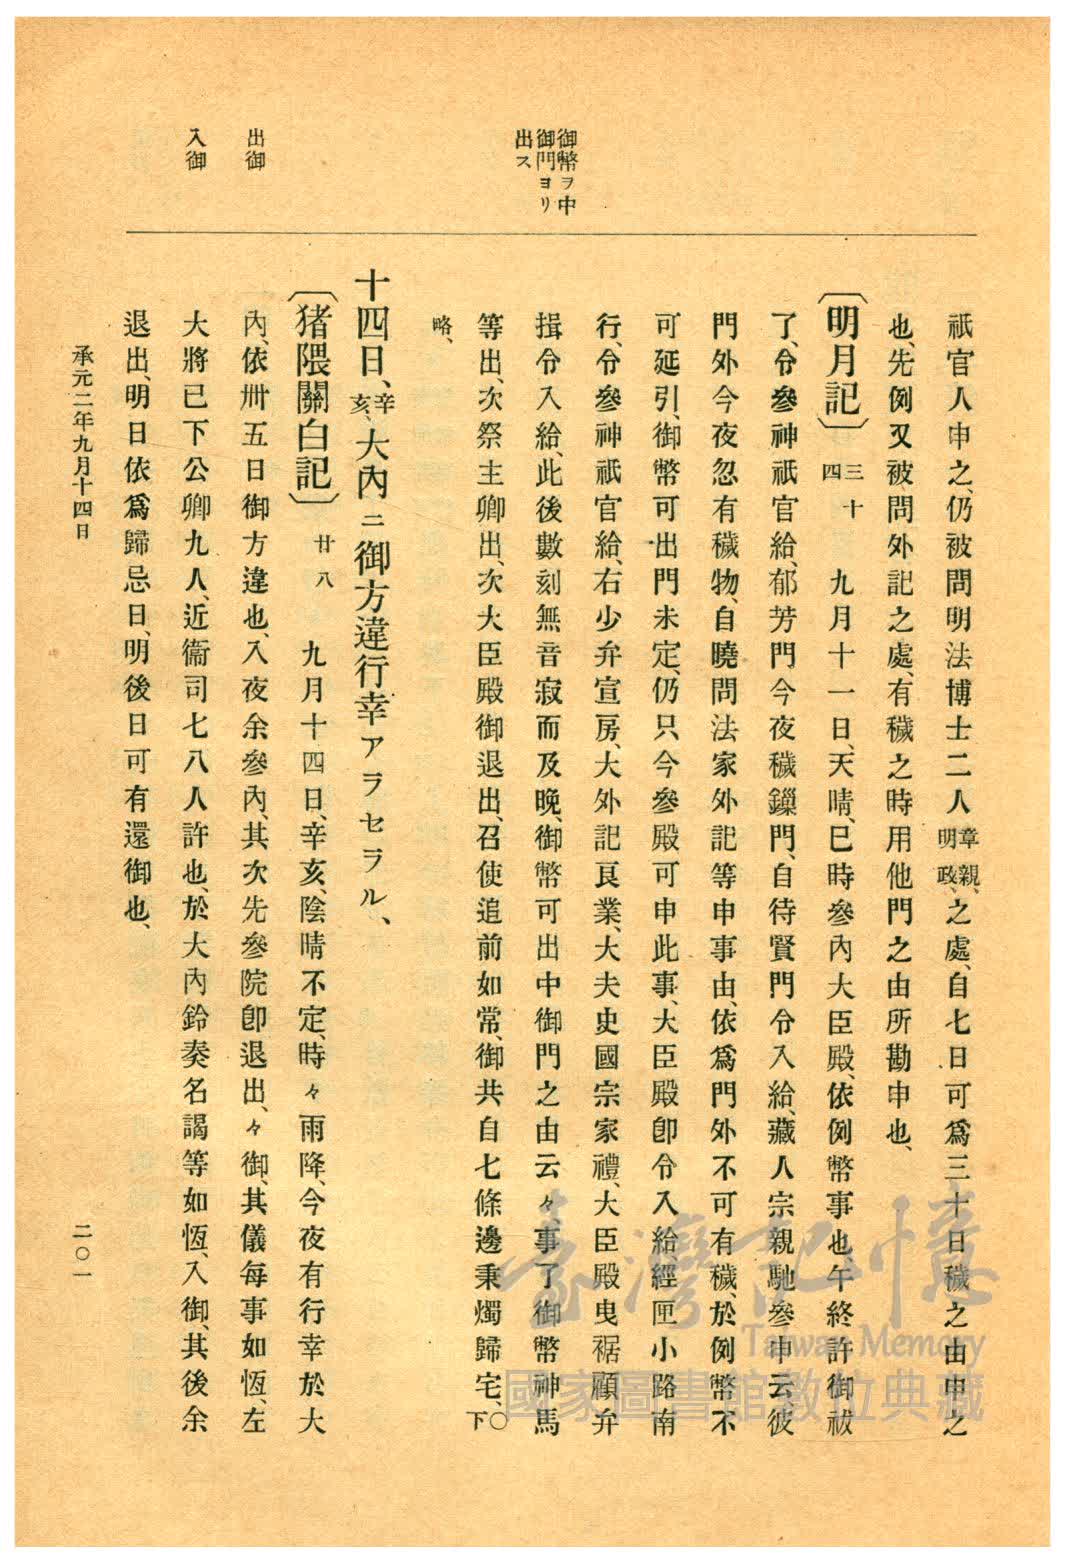 御幣ヲ中
御門ヨリ
出ス
出御
入御
祇官人申之、仍被問明法博士二人章親、明政、之處、自七日可爲三十日穢之由申之
也、先例又被問外記之處、有穢之時用他門之由所勘申也、
〔明月記〕三十四 九月十一日、天晴、巳時參內大臣殿、依例幣事也、午終許御祓
了、令參神祇官給、郁芳門今夜穢鏁門、自待賢門令入給、藏人宗親馳參申云、彼
門外今夜忽有穢物、自曉問法家外記等申事由、依爲門外不可有穢、於例幣不
可延引、御幣可出門未定、仍只今參殿可申此事、大臣殿卽令入給、經匣小路南
行、令參神祇官給、右少弁宣房、大外記良業、大夫史國宗家禮、大臣殿曳裾顧弁
揖令入給、此後數刻無音寂而及晚、御幣可出中御門之由云々、事了御幣神馬
等出、次祭主卿出、次大臣殿御退出、召使追前如常、御共自七條邊秉燭歸宅、〇下
略、
十四日、辛亥、大內ニ御方違行幸アラセラル、
〔猪隈關白記〕廿八 九月十四日、辛亥、陰晴不定、時々雨降、今夜有行幸於大
內、依卅五日御方違也、入夜余參內、其次先參院卽退出、々御、其儀每事如恆、左
大將已下公卿九人、近衞司七八人許也、於大內鈴奏名謁等如恆、入御、其後余
退出、明日依爲歸忌日、明後日可有還御也、
承元二年九月十四日
二〇一
臺灣記憶
Taiwan Memory
國家圖書館數位典藏